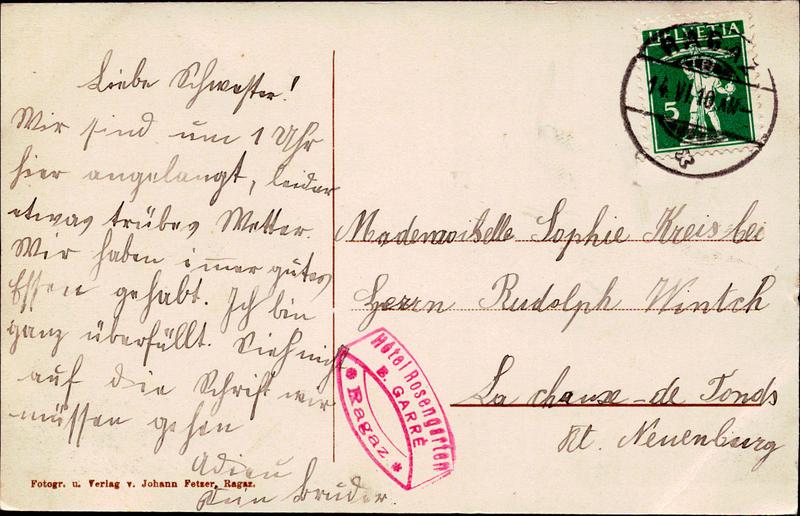 Liebe Schwester!
Wir sind um 1 Uhr
hier angelangt, leider
etwas trübes Wetter.
Wir haben immer gutes
Essen gehabt. Ich bin
ganz überfüllt. Sieh nicht
auf die Schrift wir
müssen gehen
Adieu
Dein Bruder.
Fotogr. u. Verlag v. Johann Fetzer, Ragaz.
HELVETIA
5
RAGAZ
14.VI.10.
Mademoiselle Sophie Kreis bei
Herrn Rudolph Wintch
La chaux-de Fonds
Kt. Neuenburg
Hôtel Rosengarten
B. GARRÈ
* Ragaz *